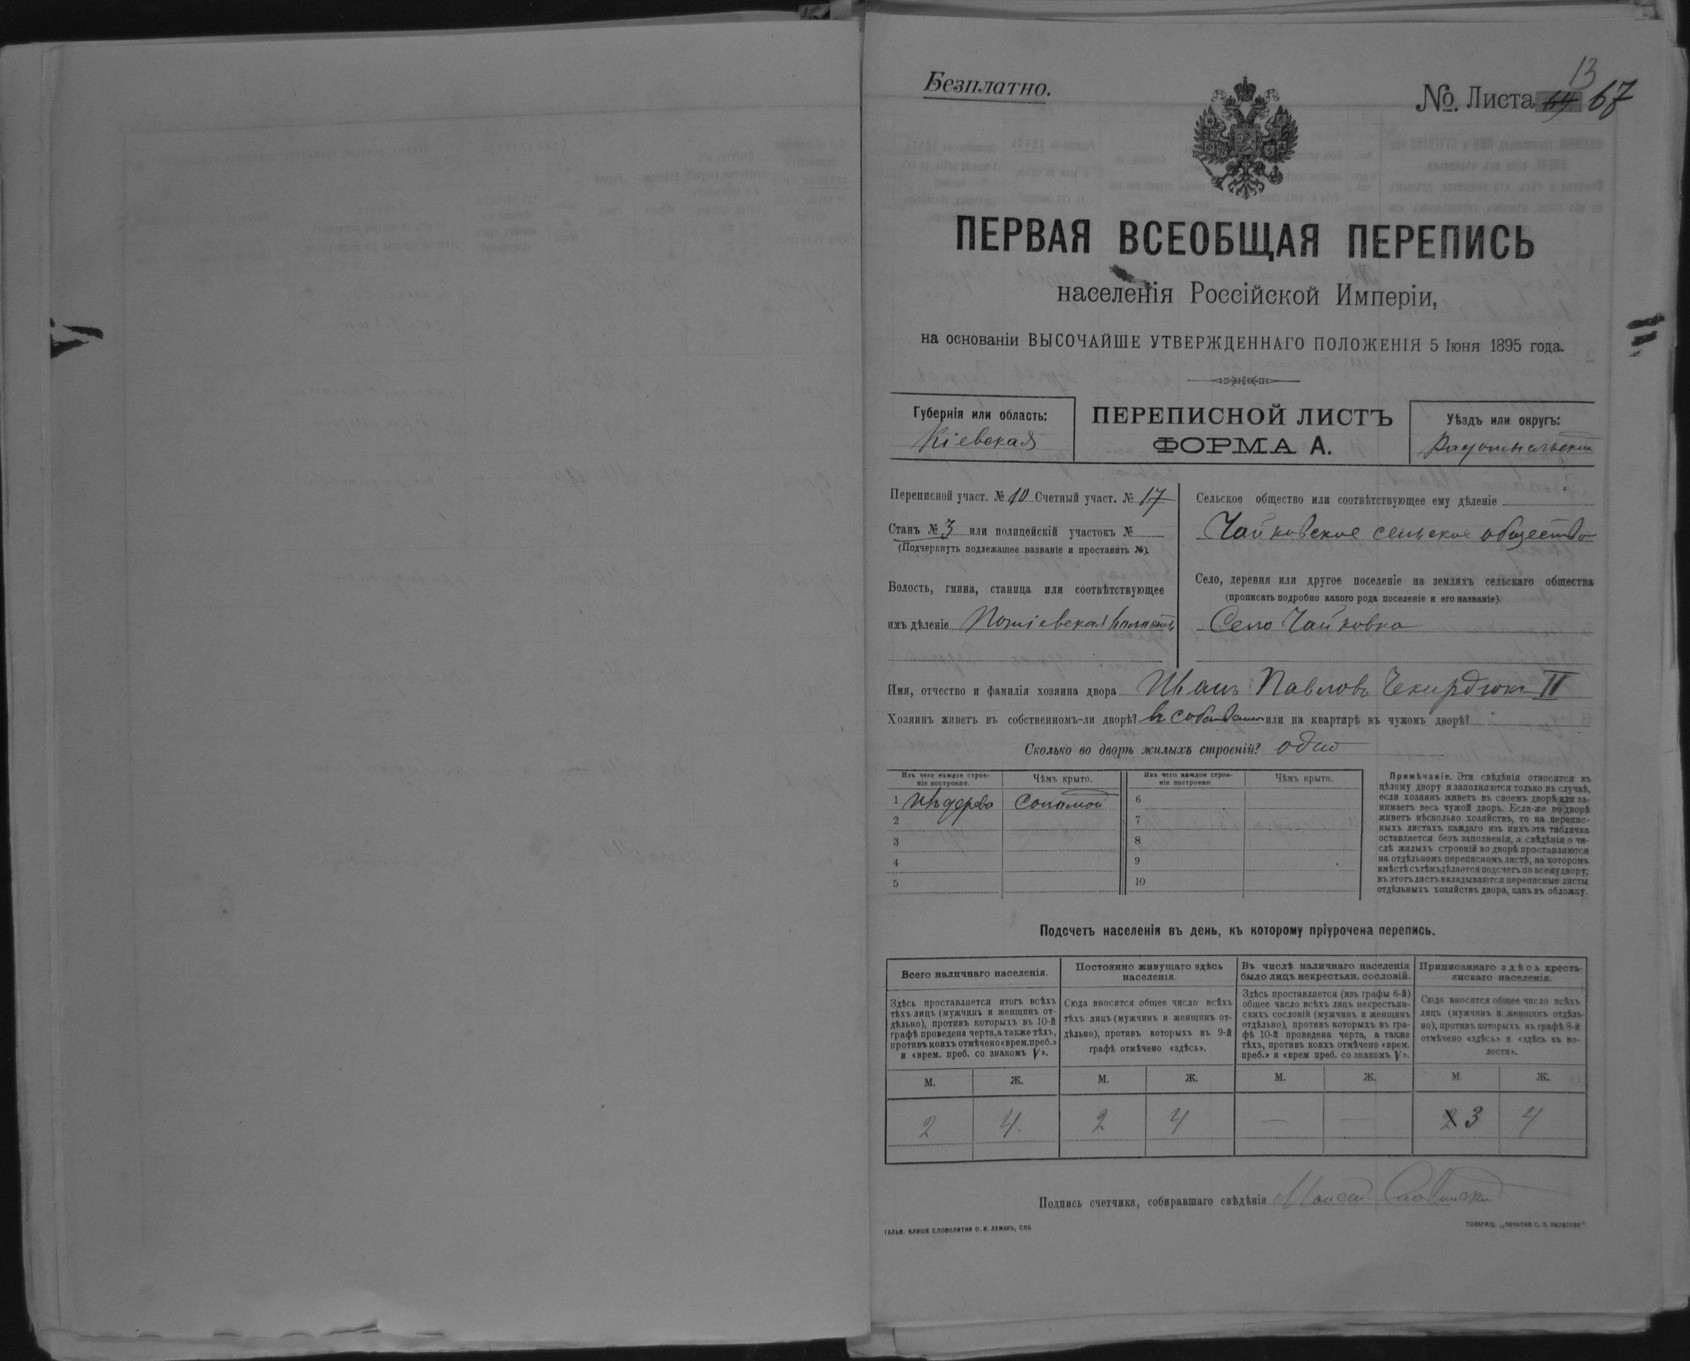 13
Безплатно.
№. Листа 67
ПЕРВАЯ ВСЕОБЩАЯ ПЕРЕПИСЬ
населенія Россійской Имперіи,
на основаніи ВЫСОЧАЙШЕ УТВЕРЖДЕННАГО ПОЛОЖЕНІЯ 5 Іюня 1895 года.
Губернія или область:
Кіевская
ПЕРЕПИСНОЙ ЛИСТЪ
ФОРМА А.
Уѣздъ или округъ:
Радомысльскій
Переписной участ. № 10 Счетный участ. № 17
Станъ № 3 или полицейскій участокъ №
(Подчеркнуть подлежащее названіе и проставить №).
Волость, гмина, станица или соотвѣтствующее
имъ дѣленіе Потіевская волость
Сельское общество или соотвѣтствующее ему дѣленіе
Чайковское сельское общество
Село, деревня или другое поселеніе на земляхъ сельскаго общества
(прописать подробно какого рода поселеніе и его названіе).
Село Чайковка
Имя, отчество и фамилія хозяина двора Иванъ Павловъ Чекирдюкъ II
Хозяинъ живетъ въ собственномъ-ли дворѣ? въ собственномъ или на квартирѣ въ чужомъ дворѣ?
Сколько во дворѣ жилыхъ строеній? одно
Изъ чего каждое строе-
ніе построено.
Чѣмъ крыто.
Изъ чего каждое строе-
ніе построено.
Чѣмъ крыто.
1 Изъ дерева Соломой
2
3
4
5
6
7
8
9
10
Примѣчаніе. Эти свѣдѣнія относятся къ
цѣлому двору и заполняются только въ случаѣ,
если хозяинъ живетъ въ своемъ дворѣ или за-
нимаетъ весь чужой дворъ. Если-же во дворѣ
живетъ нѣсколько хозяйствъ, то на перепис-
ныхъ листахъ каждаго изъ нихъ эта табличка
оставляется безъ заполненія, а свѣдѣнія о чи-
слѣ жилыхъ строеній во дворѣ проставляются
на отдѣльномъ переписномъ листѣ, на которомъ
вмѣстѣ съ тѣмъ дѣлается подсчетъ по всему двору;
въ этотъ листъ вкладываются переписные листы
отдѣльныхъ хозяйствъ двора, какъ въ обложку
Подсчетъ населенія въ день, къ которому пріурочена перепись.
Всего наличнаго населенія.
Здѣсь проставляется итогъ всѣхъ
тѣхъ лицъ (мужчинъ и женщинъ от-
дѣльно), противъ которыхъ въ 10-й
графѣ проведена черта, а также тѣхъ,
противъ коихъ отмѣчено «врем. преб.»
и «врем. преб. со знакомъ V».
М. Ж.
2 4.
Постоянно живущаго здѣсь
населенія.
Сюда вносится общее число всѣхъ
тѣхъ лицъ (мужчинъ и женщинъ от-
дѣльно), противъ которыхъ въ 9-й
графѣ отмѣчено «здѣсь».
М. Ж.
2 4
Въ числѣ наличнаго населенія
было лицъ некрестьян. сословій.
Здѣсь проставляется (изъ графы 6-й)
общее число всѣхъ лицъ некрестьян-
скихъ сословій (мужчинъ и женщинъ
отдѣльно), противъ которыхъ въ гра-
фѣ 10-й проведена черта, а также
тѣхъ, противъ коихъ отмѣчено «врем.
преб.» и «врем преб. со знакомъ V».
М. Ж.
— —
Приписаннаго здѣсь кресть-
янскаго населенія.
Сюда вносится общее число всѣхъ
лицъ (мужчинъ и женщинъ отдѣль-
но), противъ которыхъ въ графѣ 8-й
отмѣчено «здѣсь» и «здѣсь къ во-
лости».
М Ж.
3 4
Подпись счетчика, собиравшаго свѣдѣнія
ГАЛЬВ. КЛИШЕ СЛОВОЛИТНИ О. И. ЛЕМАНЪ, СПБ.
ТОВАРИЩ. „ПЕЧАТНЯ С. П. ЯКОВЛЕВА"